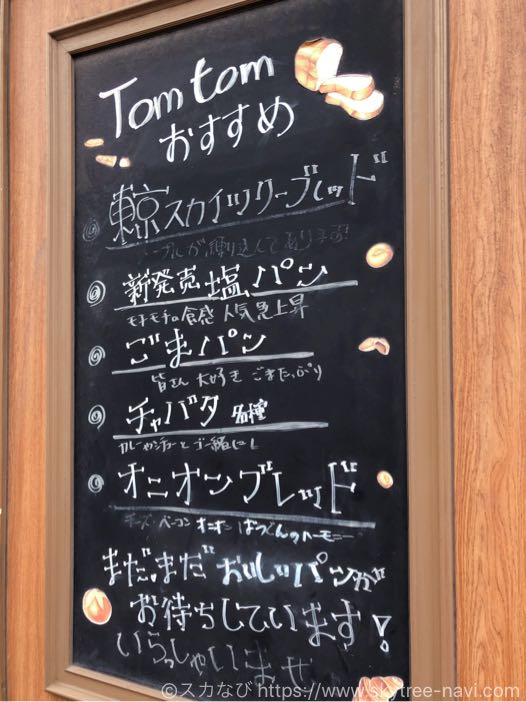 Tom tom
おすすめ
東京スカイツリーブレッド
メープルが練り込んであります!
新発売 塩パン
モチモチの食感 人気急上昇
ごまパン
皆さん 大好き ごまたっぷり
チャバタ 各種
カレーやシチューとご一緒に
オニオンブレッド
チーズ・ベーコン オニオン ばつぐんのハーモニー
まだまだ おいしいパンが
お待ちしています!
いらっしゃいませ
©スカなび https://www.skytree-navi.com